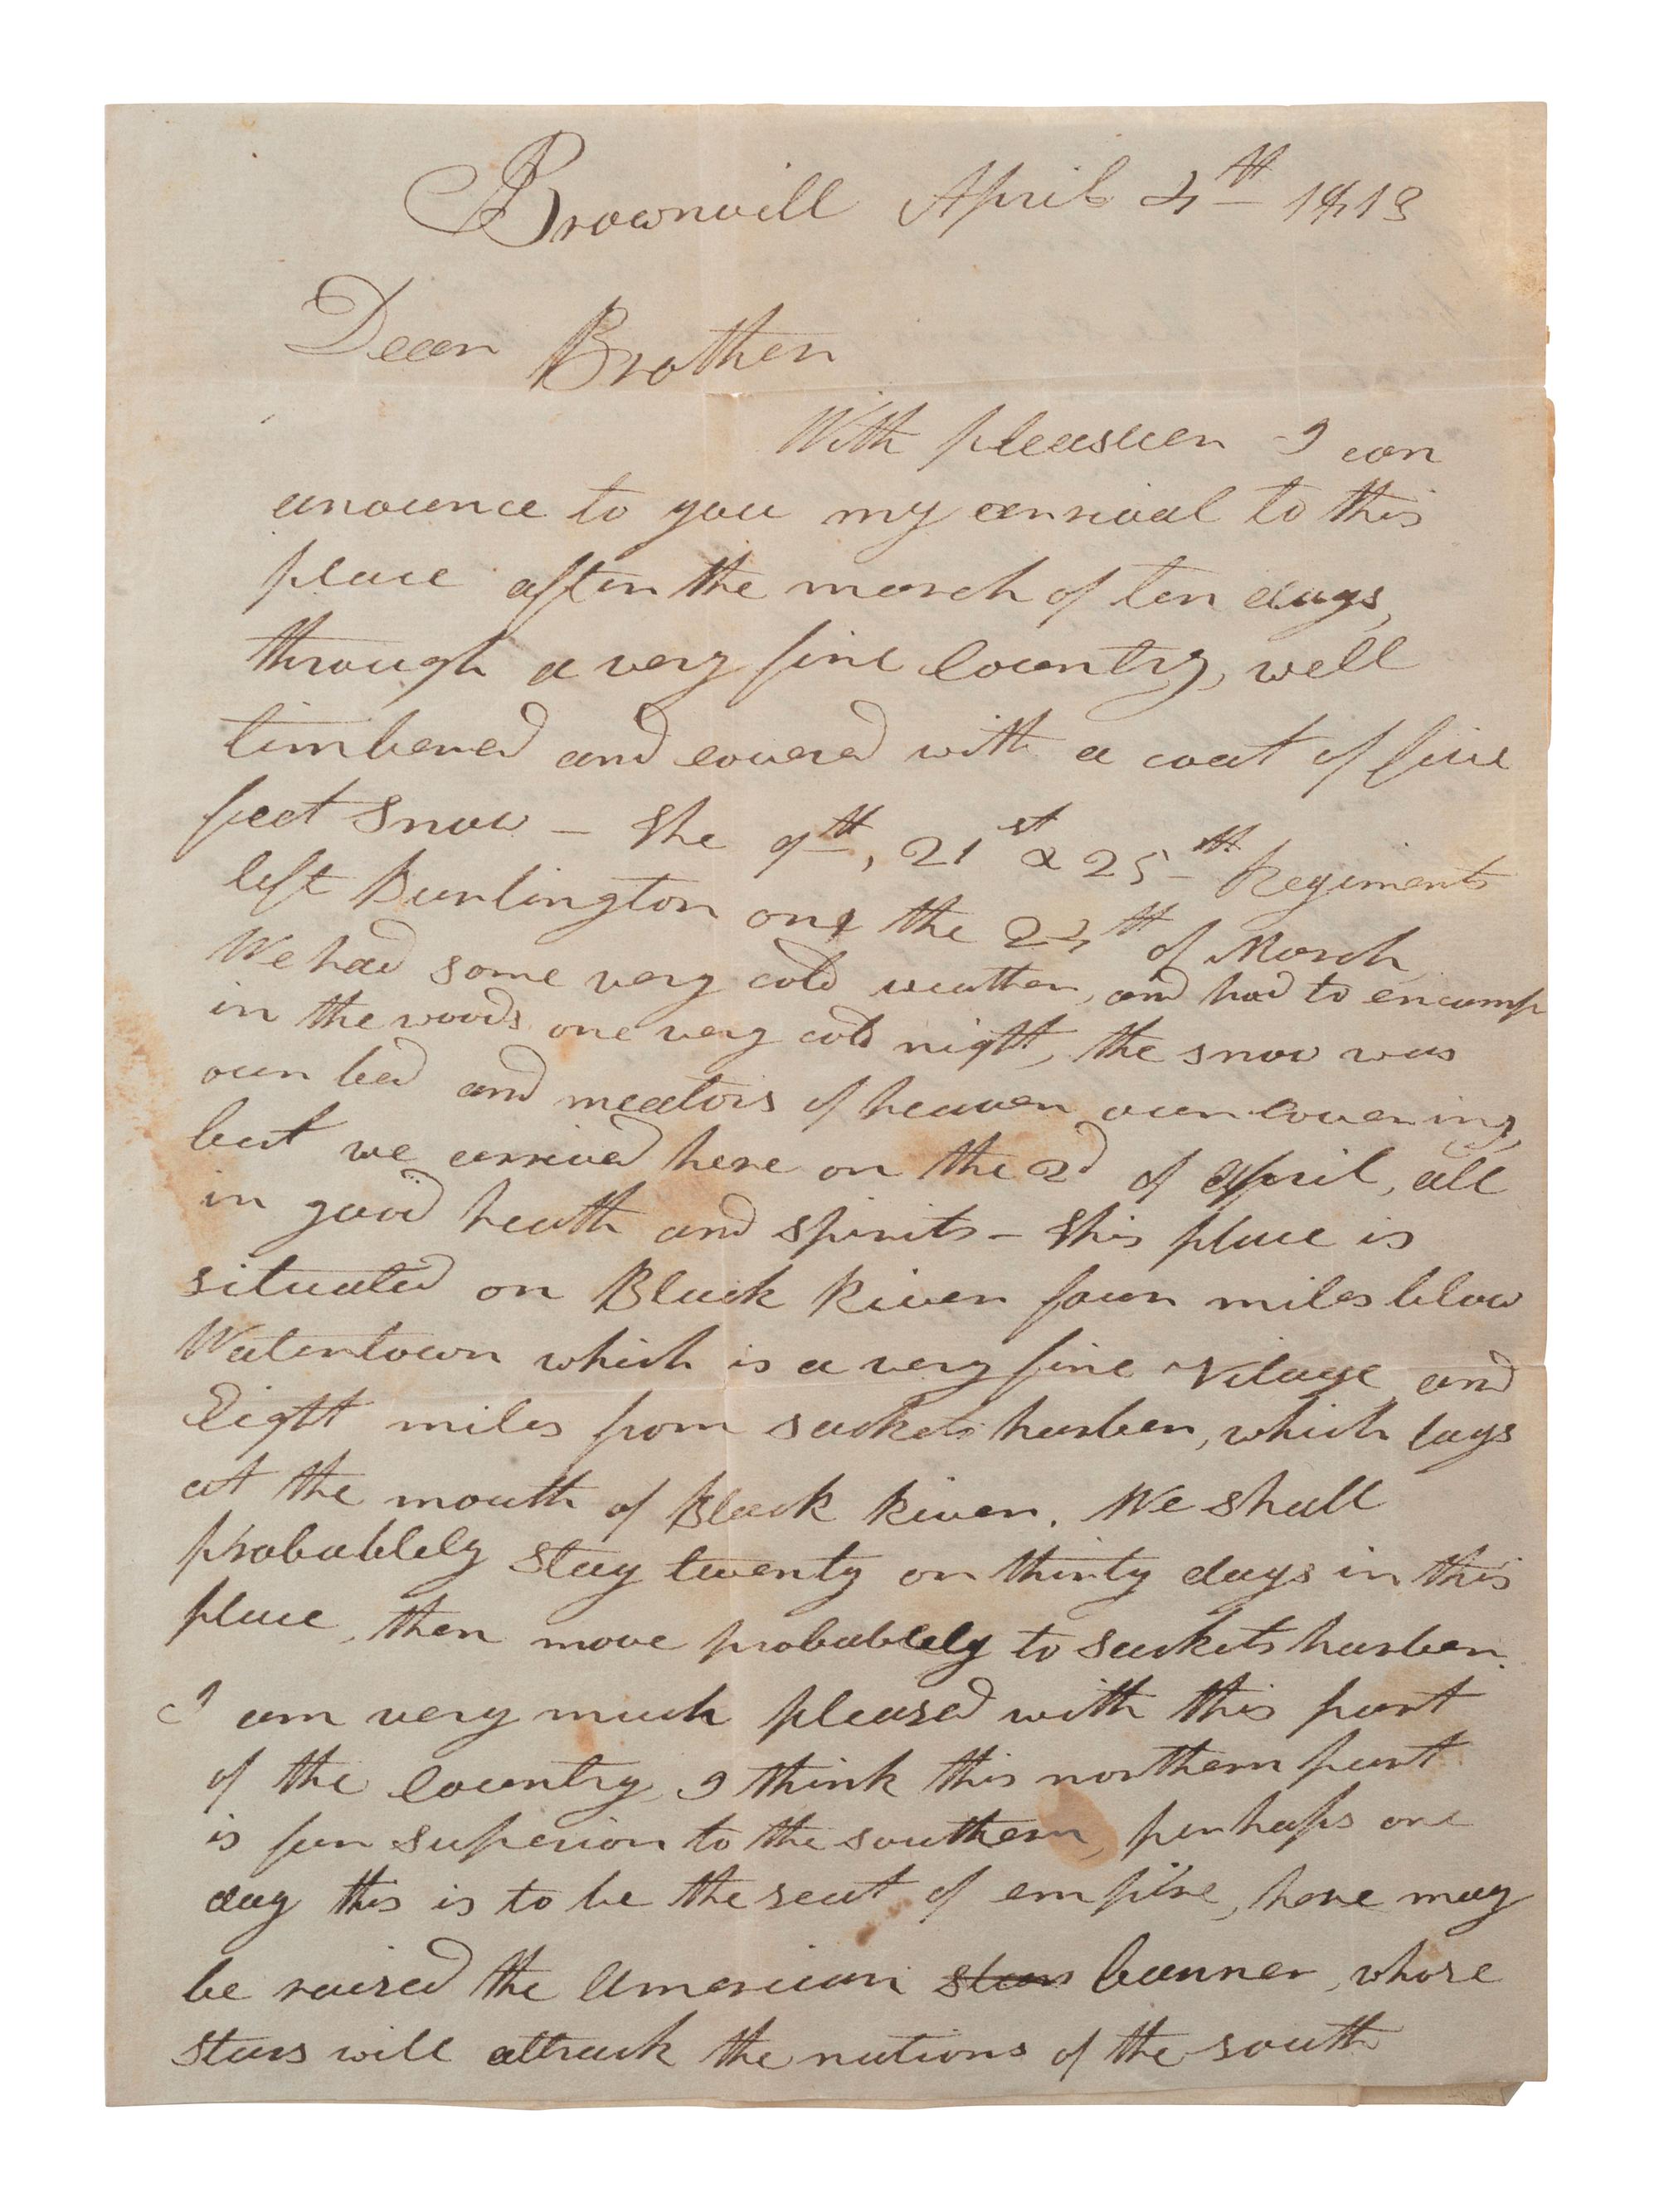 Brownvill April 4th 1813
Dear Brother
With pleasuer I can
anounce to you my arrival to this
place after the march of ten days,
through a very fine Country, well
timbered and covered with a coat of five
feet Snow - The 9th, 21st & 25th Regiments
left Burlington on the 24th of March
We had some very cold weather, and had to encamp
in the woods one very cold night, the snow was
our bed and meators of heaven our covering,
but we arrived here on the 2d of April, all
in good heath and spirits - This place is
situated on Black River four miles blow
Watertown which is a very fine Vilage and
Eight miles from sackets harber, which lays
at the mouth of Black River. We shall
probablely stay twenty or thirty days in this
place, then move probablely to Sackets harber.
I am very much pleased with this part
of the Country, I think this northern part
is far superior to the southern, perhaps one
day this is to be the seat of empire, here may
be raised the American stars banner, whose
stars will attrack the nations of the south